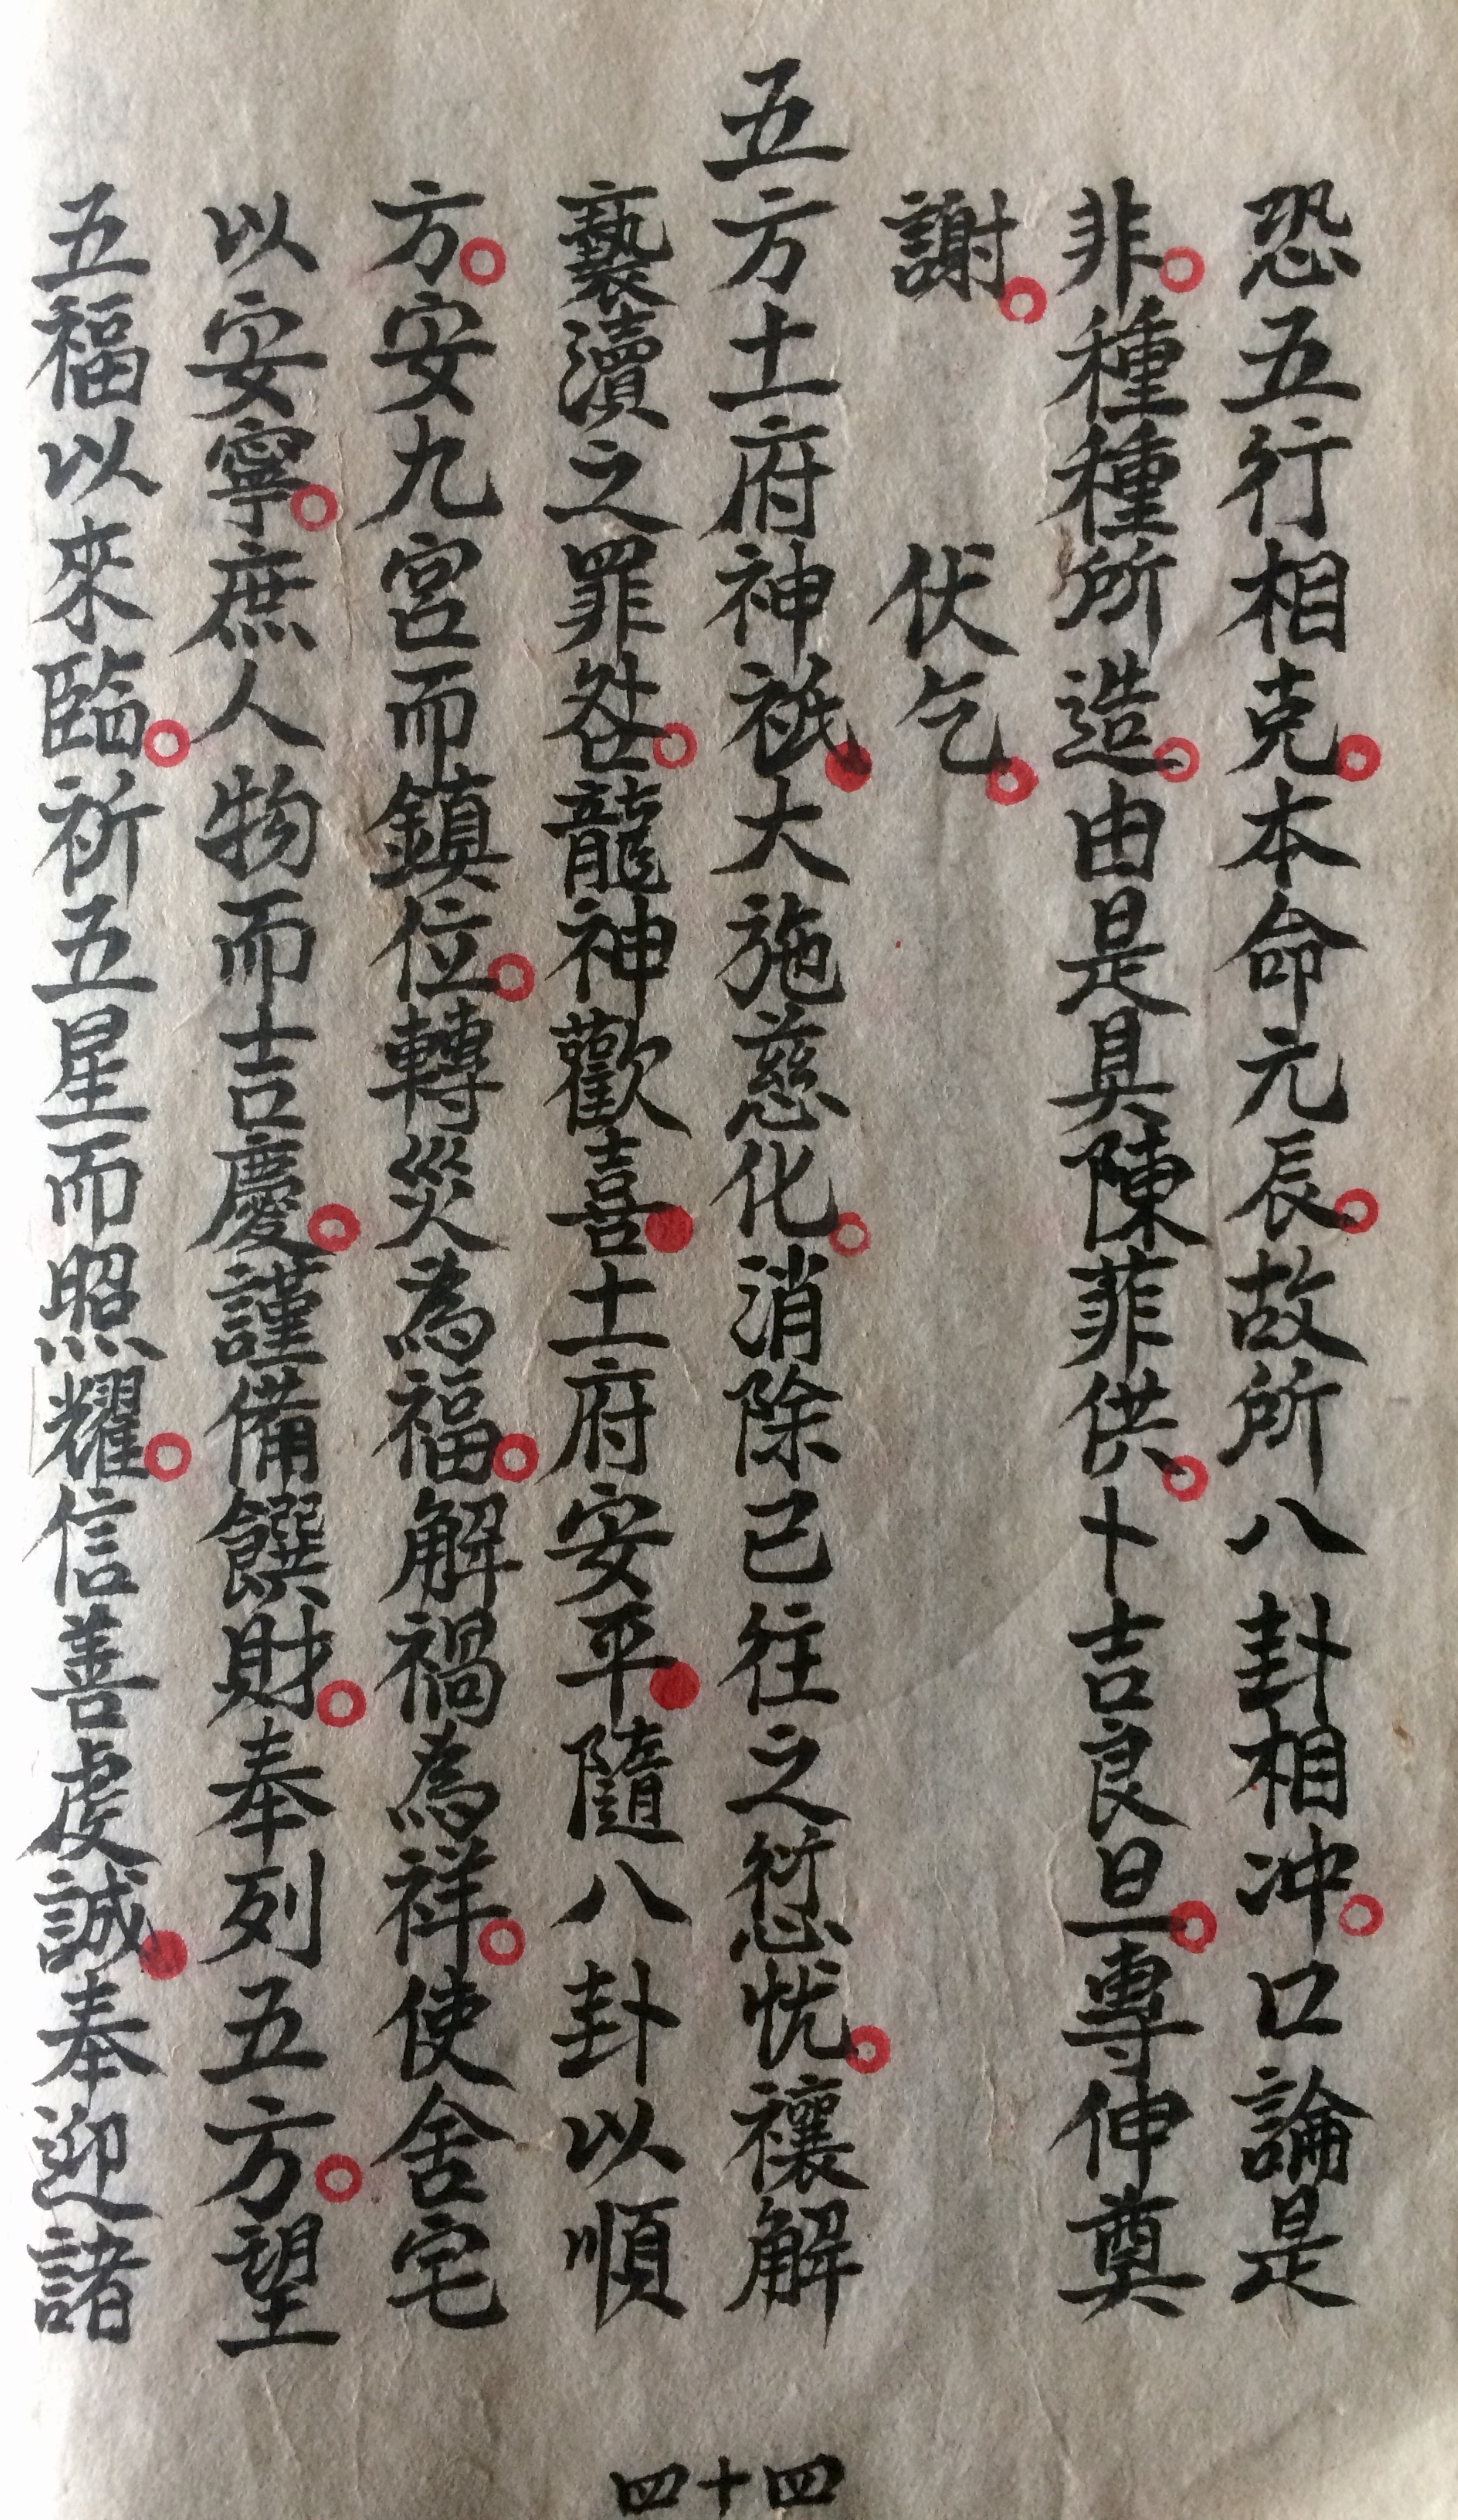 恐五行相克本命元辰故所八卦相冲口論是
非種種所造由是具陳菲供卜吉良旦專伸奠
謝伏乞
五方土府神祇大施慈化消除已往之愆忧禳解
褻瀆之罪咎龍神歡喜土府安平隨八卦以順
方安九宮而鎮位轉災為福解禍為祥使舍宅
以安寧庶人物而吉慶謹備饌財奉列五方望
五福以來臨祈五星而照耀信善虔誠奉迎諸
四十四